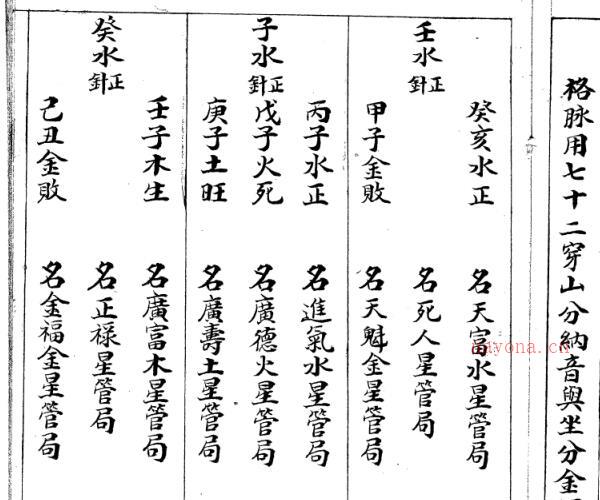 格脉用七十二穿山分納音與坐分金
壬水正針
癸亥水正
名天富水星管局
名死人星管局
甲子金敗
名天魁金星管局
子水正針
丙子水正
名進氣水星管局
戊子火死
名廣德火星管局
庚子土旺
名廣壽土星管局
癸水正針
壬子木生
名廣富木星管局
名正祿星管局
己丑金敗
名金福金星管局